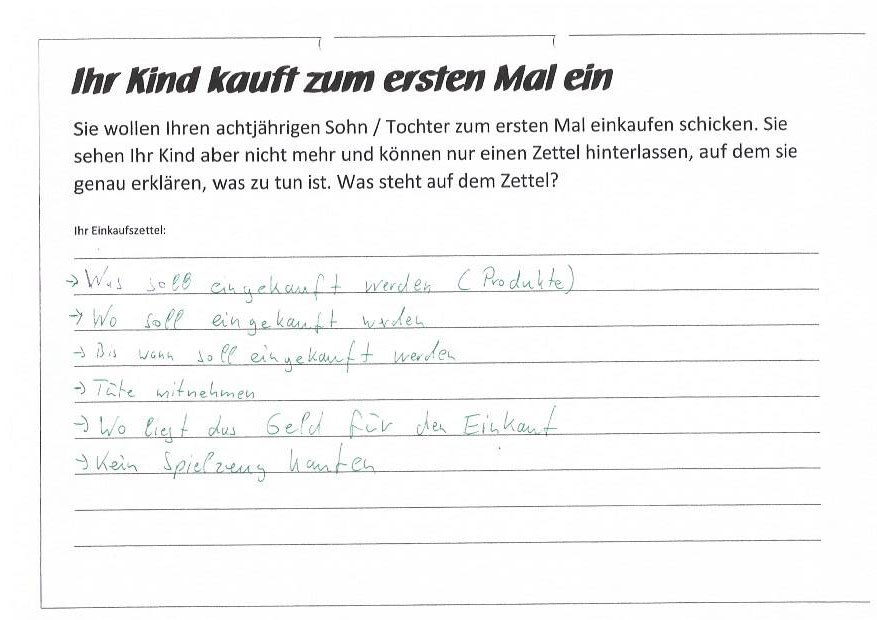 Ihr Kind kauft zum ersten Mal ein
Sie wollen Ihren achtjährigen Sohn / Tochter zum ersten Mal einkaufen schicken. Sie
sehen Ihr Kind aber nicht mehr und können nur einen Zettel hinterlassen, auf dem sie
genau erklären, was zu tun ist. Was steht auf dem Zettel?
Ihr Einkaufszettel:
→ Was soll eingekauft werden (Produkte)
→ Wo soll eingekauft werden
→ Bis wann soll eingekauft werden
→ Tüte mitnehmen
→ Wo liegt das Geld für den Einkauf
→ Kein Spielzeug kaufen